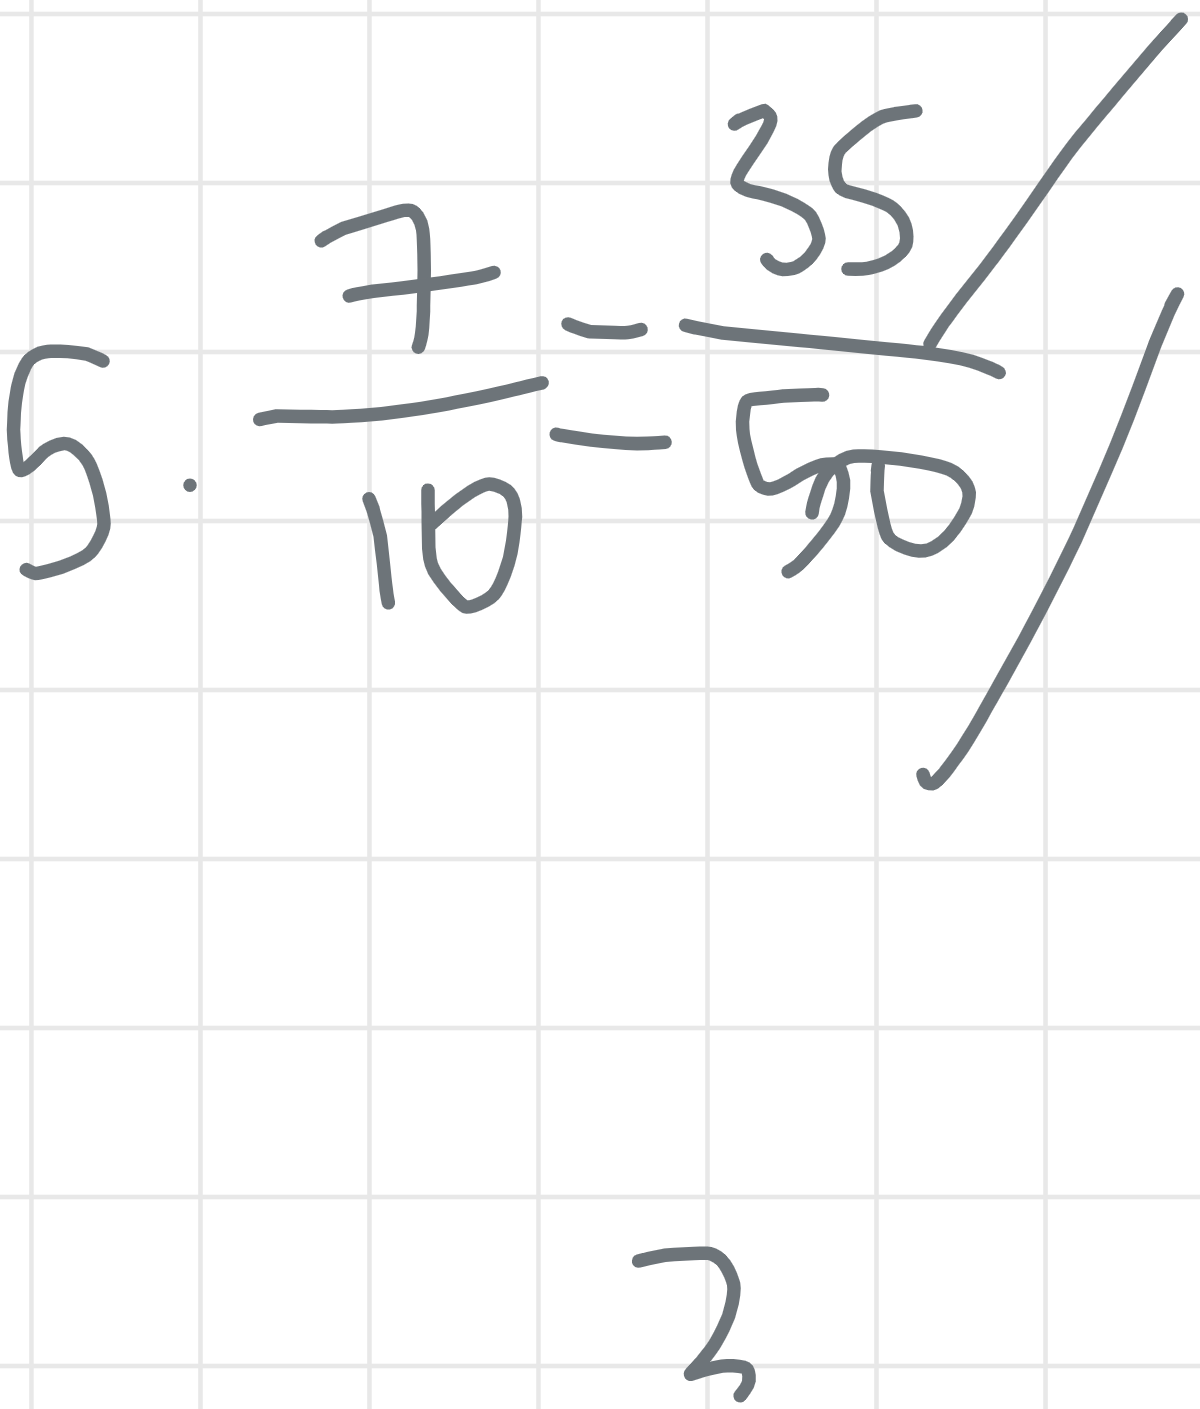 5 · 7/10 = 35/50 //
2